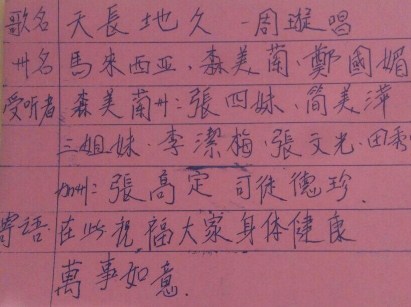 歌名 天長地久 -周璇唱
州名 馬来西亚.森美蘭.鄭國媚
受听者 森美蘭州:張四妹.简美萍
三姐妹.李潔梅.張文光.田秀
加州:張高定 司徒德珍
寄語: 在此祝福大家身体健康
萬事如意.